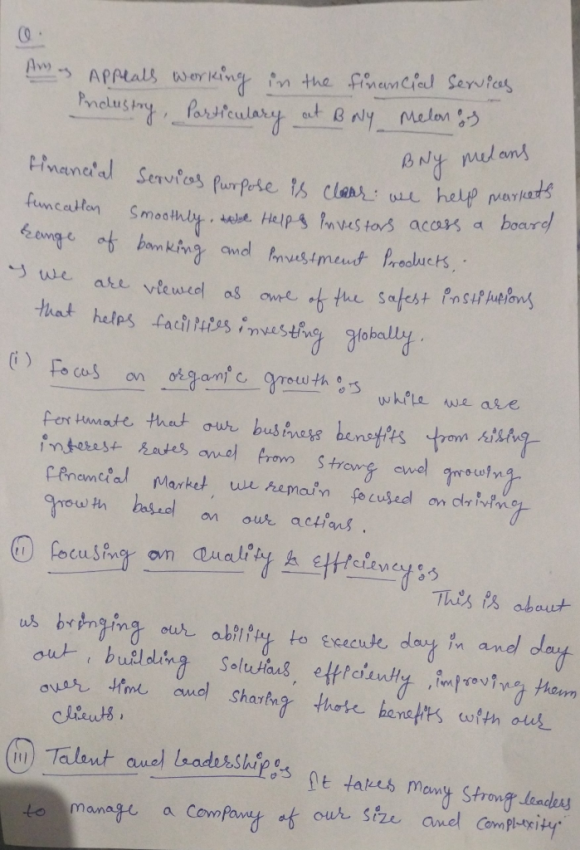 Q.
Ans → Appeals working in the financial Services
Industry, Particulary at B Ny Melon :→
BNy melans
financial Services purpose is clear: we help markets
funcation smoothly. Helps Investors access a board
range of banking and Investment Products.
→ we are viewed as one of the safest institutions
that helps facilities investing globally.
(i) Focus on organic growth :→
while we are
fortunate that our business benefits from rising
interest rates and from strong and growing
financial Market, we remain focused on driving
growth based on our actions.
(ii) focusing on Quality & efficiency :→
This is about
us bringing our ability to execute day in and day
out, building solutions, efficiently, improving them
over time and sharing those benefits with our
clients.
(iii) Talent and leadership :→ It takes many strong leaders
to manage a company of our size and complexity